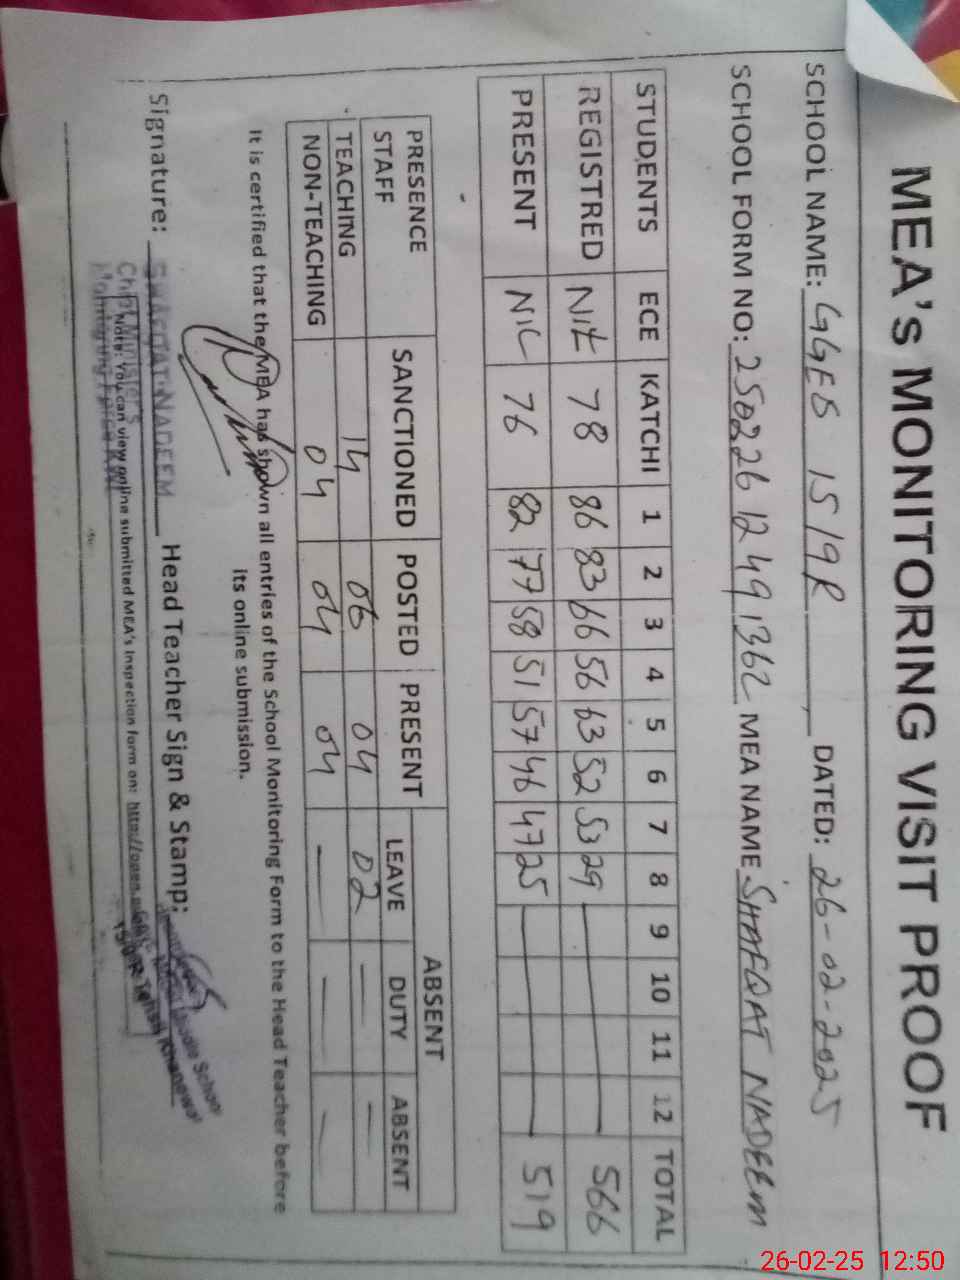 MEA's MONITORING VISIT PROOF
SCHOOL NAME: GGES 15 19R DATED: 26-02-2025
SCHOOL FORM NO: 250226 12491362 MEA NAME SHAFQAT NADEEM
STUDENTS ECE KATCHI 1 2 3 4 5 6 7 8 9 10 11 12 TOTAL
REGISTRED NIL 78 86 83 66 56 63 52 53 29 566
PRESENT NIL 76 82 77 58 51 57 46 47 25 519
PRESENCE STAFF SANCTIONED POSTED PRESENT ABSENT
LEAVE DUTY ABSENT
TEACHING 14 06 04 02 — — 
NON-TEACHING 04 04 04 — — —
It is certified that the MEA has shown all entries of the School Monitoring Form to the Head Teacher before
its online submission.
Signature: Head Teacher Sign & Stamp:
SHAFQAT NADEEM
Chief Minister's
Monitoring Force
Note: You can view online submitted MEA's inspection form on: http://open.
Middle School
Khanewal
26-02-25 12:50